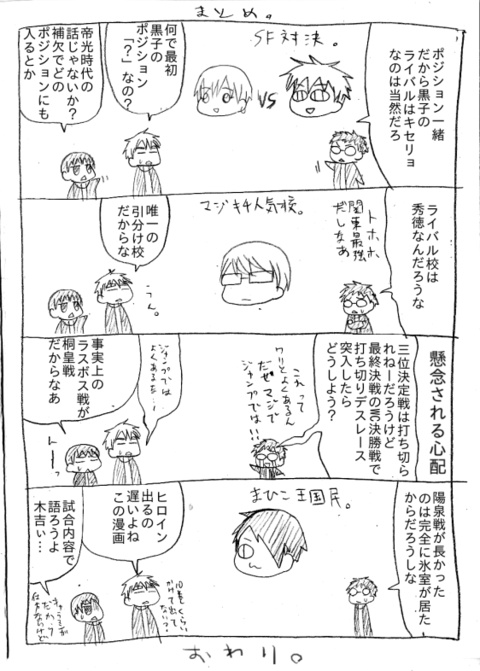 まとめ。
ポジション一緒
だから黒子の
ライバルはキセリョ
なのは当然だろ
SF対決。
VS
何で最初
黒子の
ポジション
「？」なの？
帝光時代の
話じゃないか？
補欠でどの
ポジションにも
入るとか
ライバル校は
秀徳なんだろうな
トホホ
関東最強
だしなあ
マジキチ人気校。
唯一の
引分け校
だからな
うん。
懸念される心配
三位決定戦は打ち切ら
れねーだろうけど
最終決戦のWC決勝戦で
打ち切りデスレース
突入したら
どうしよう？
これって
ワリとよくあるん
だぜマジで
ジャンプでは!!
ジャンプでは
よくあるな…
事実上の
ラスボス戦が
桐皇戦
だからなあ
陽泉戦が長かった
のは完全に氷室が居た
からだろうしな
まひこ王国民。
ヒロイン
出るの
遅いよね
この漫画
試合内容で
語ろうよ
木吉ぃ…
おわり。